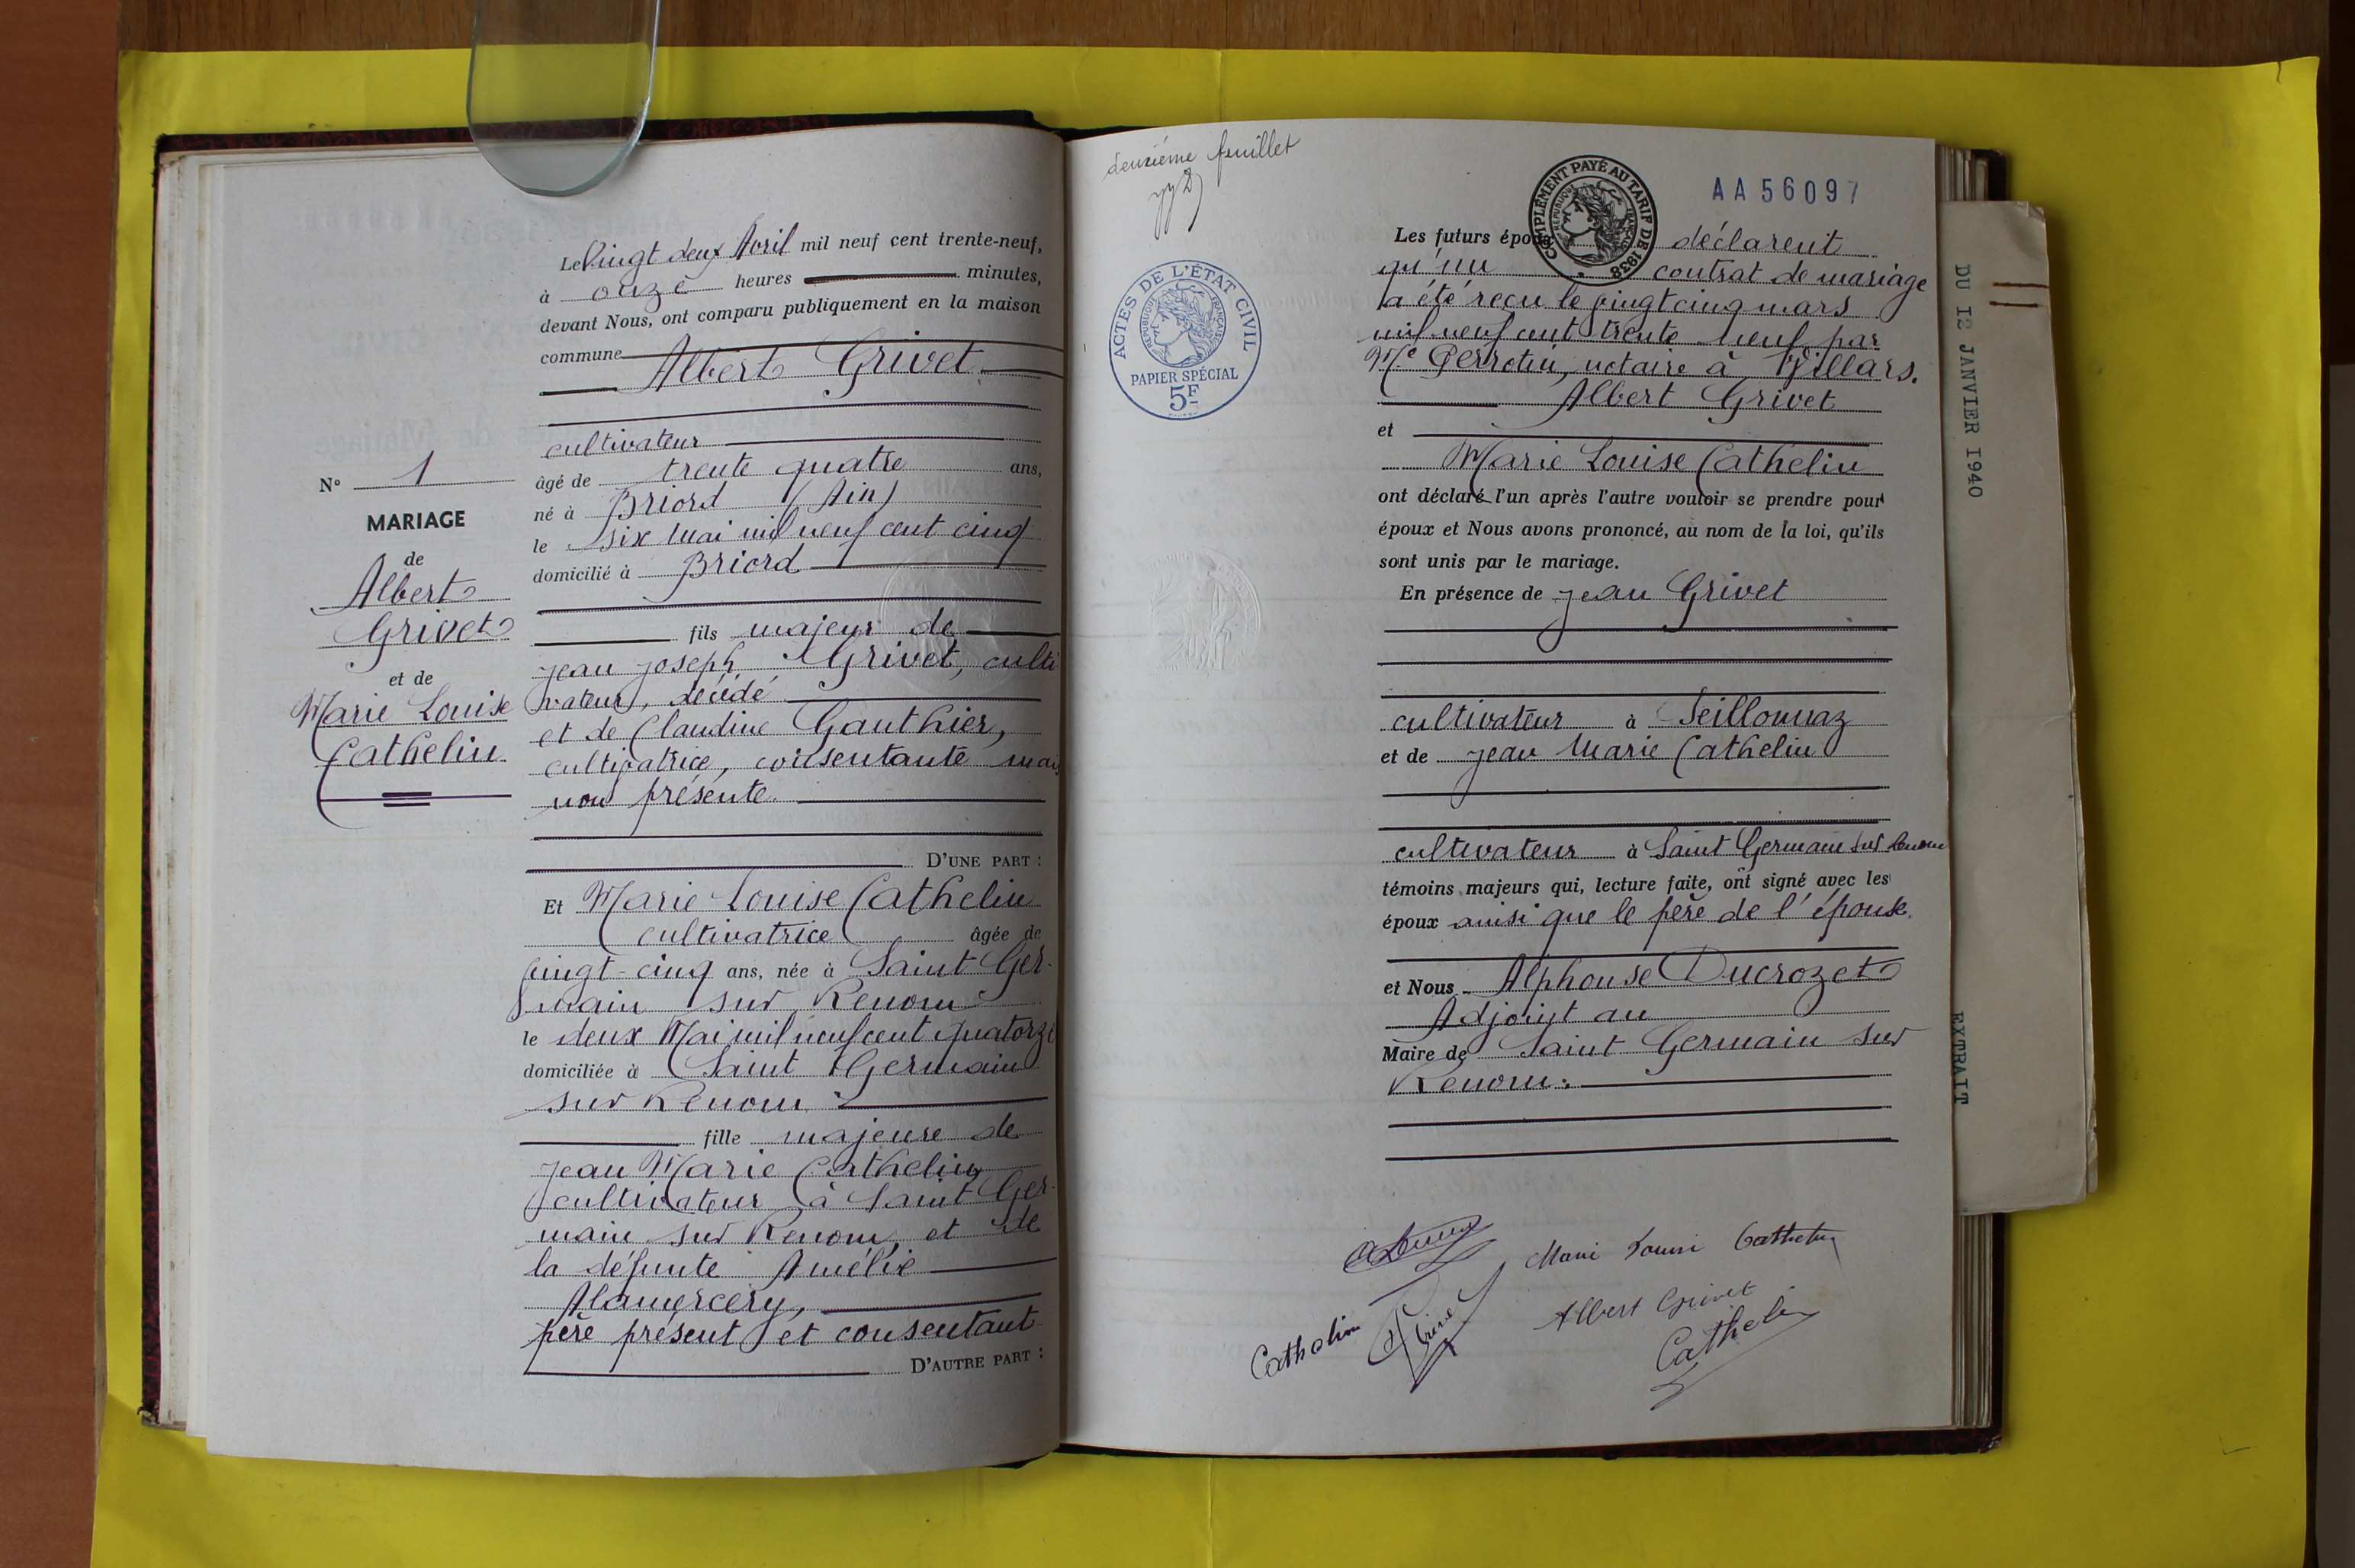 Le Vingt deux Avril mil neuf cent trente-neuf,
à onze heures minutes,
devant Nous, ont comparu publiquement en la maison
commune
Albert Grivet
cultivateur
âgé de trente quatre ans,
né à Briord (Ain)
le six Mai mil neuf cent cinq
domicilié à Briord
fils majeur de
Jean Joseph Grivet, culti
vateur, décédé
et de Claudine Gauthier,
cultivatrice, consentante mais
non présente.
D'UNE PART :
N° 1
MARIAGE
de
Albert
Grivet
et de
Marie Louise
Cathelin
Et Marie Louise Cathelin
cultivatrice âgée de
vingt-cinq ans, née à Saint Ger-
main sur Renom
le deux Mai mil neuf cent quatorze
domiciliée à Saint Germain
sur Renom
fille majeure de
Jean Marie Cathelin
cultivateur à Saint Ger-
main sur Renom, et de
la défunte Amélie
Alamercery,
père présent et consentant
D'AUTRE PART :
deuxième feuillet
ACTES DE L'ÉTAT CIVIL
RÉPUBLIQUE FRANÇAISE
PAPIER SPÉCIAL
5F
COMPLÉMENT PAYÉ AU TARIF DE 1938
RÉPUBLIQUE FRANÇAISE
AA56097
Les futurs époux déclarent
qu'un contrat de mariage
a été reçu le vingt cinq mars
mil neuf cent trente neuf par
Me Perrotin, notaire à Villars.
Albert Grivet
et
Marie Louise Cathelin
ont déclaré l'un après l'autre vouloir se prendre pour
époux et Nous avons prononcé, au nom de la loi, qu'ils
sont unis par le mariage.
En présence de Jean Grivet
cultivateur à Seillonnaz
et de Jean Marie Cathelin
cultivateur à Saint Germain sur Renom
témoins majeurs qui, lecture faite, ont signé avec les
époux ainsi que le père de l'épouse.
et Nous Alphonse Ducrozet
Adjoint au
Maire de Saint Germain sur
Renom.
Marie Louise Cathelin
Albert Grivet
Cathelin
Cathelin
DU 12 JANVIER 1940
EXTRAIT